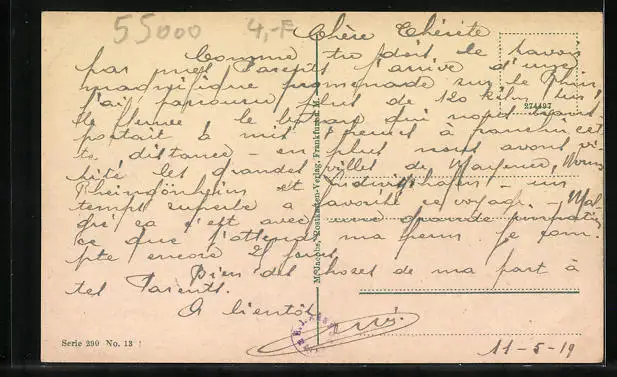 55000 4,-F
Chère Thérèse
Comme tu dois le savoir
par mes Parents j'arrive d'une
magnifique promenade sur le Rhin,
j'ai parcouru plus de 120 kilm sur
le fleuve, le bateau qui nous
portait à mis heures à franchir cet
te distance - en plus nous avons vi
sité les grandes villes de Mayence, Worms
Rheingönheim et Ludwigshafen - un
temps superbe a favorisé ce voyage - Mal
gré ça c'est avec une grande
ce que j'attends ma perm je com
pte encore jours
Bien des choses de ma part à
tes Parents.
A bientôt
11-5-19
274487
M. Jacobs, Postkarten-Verlag, Frankfurt a. M.
Serie 290 No. 13